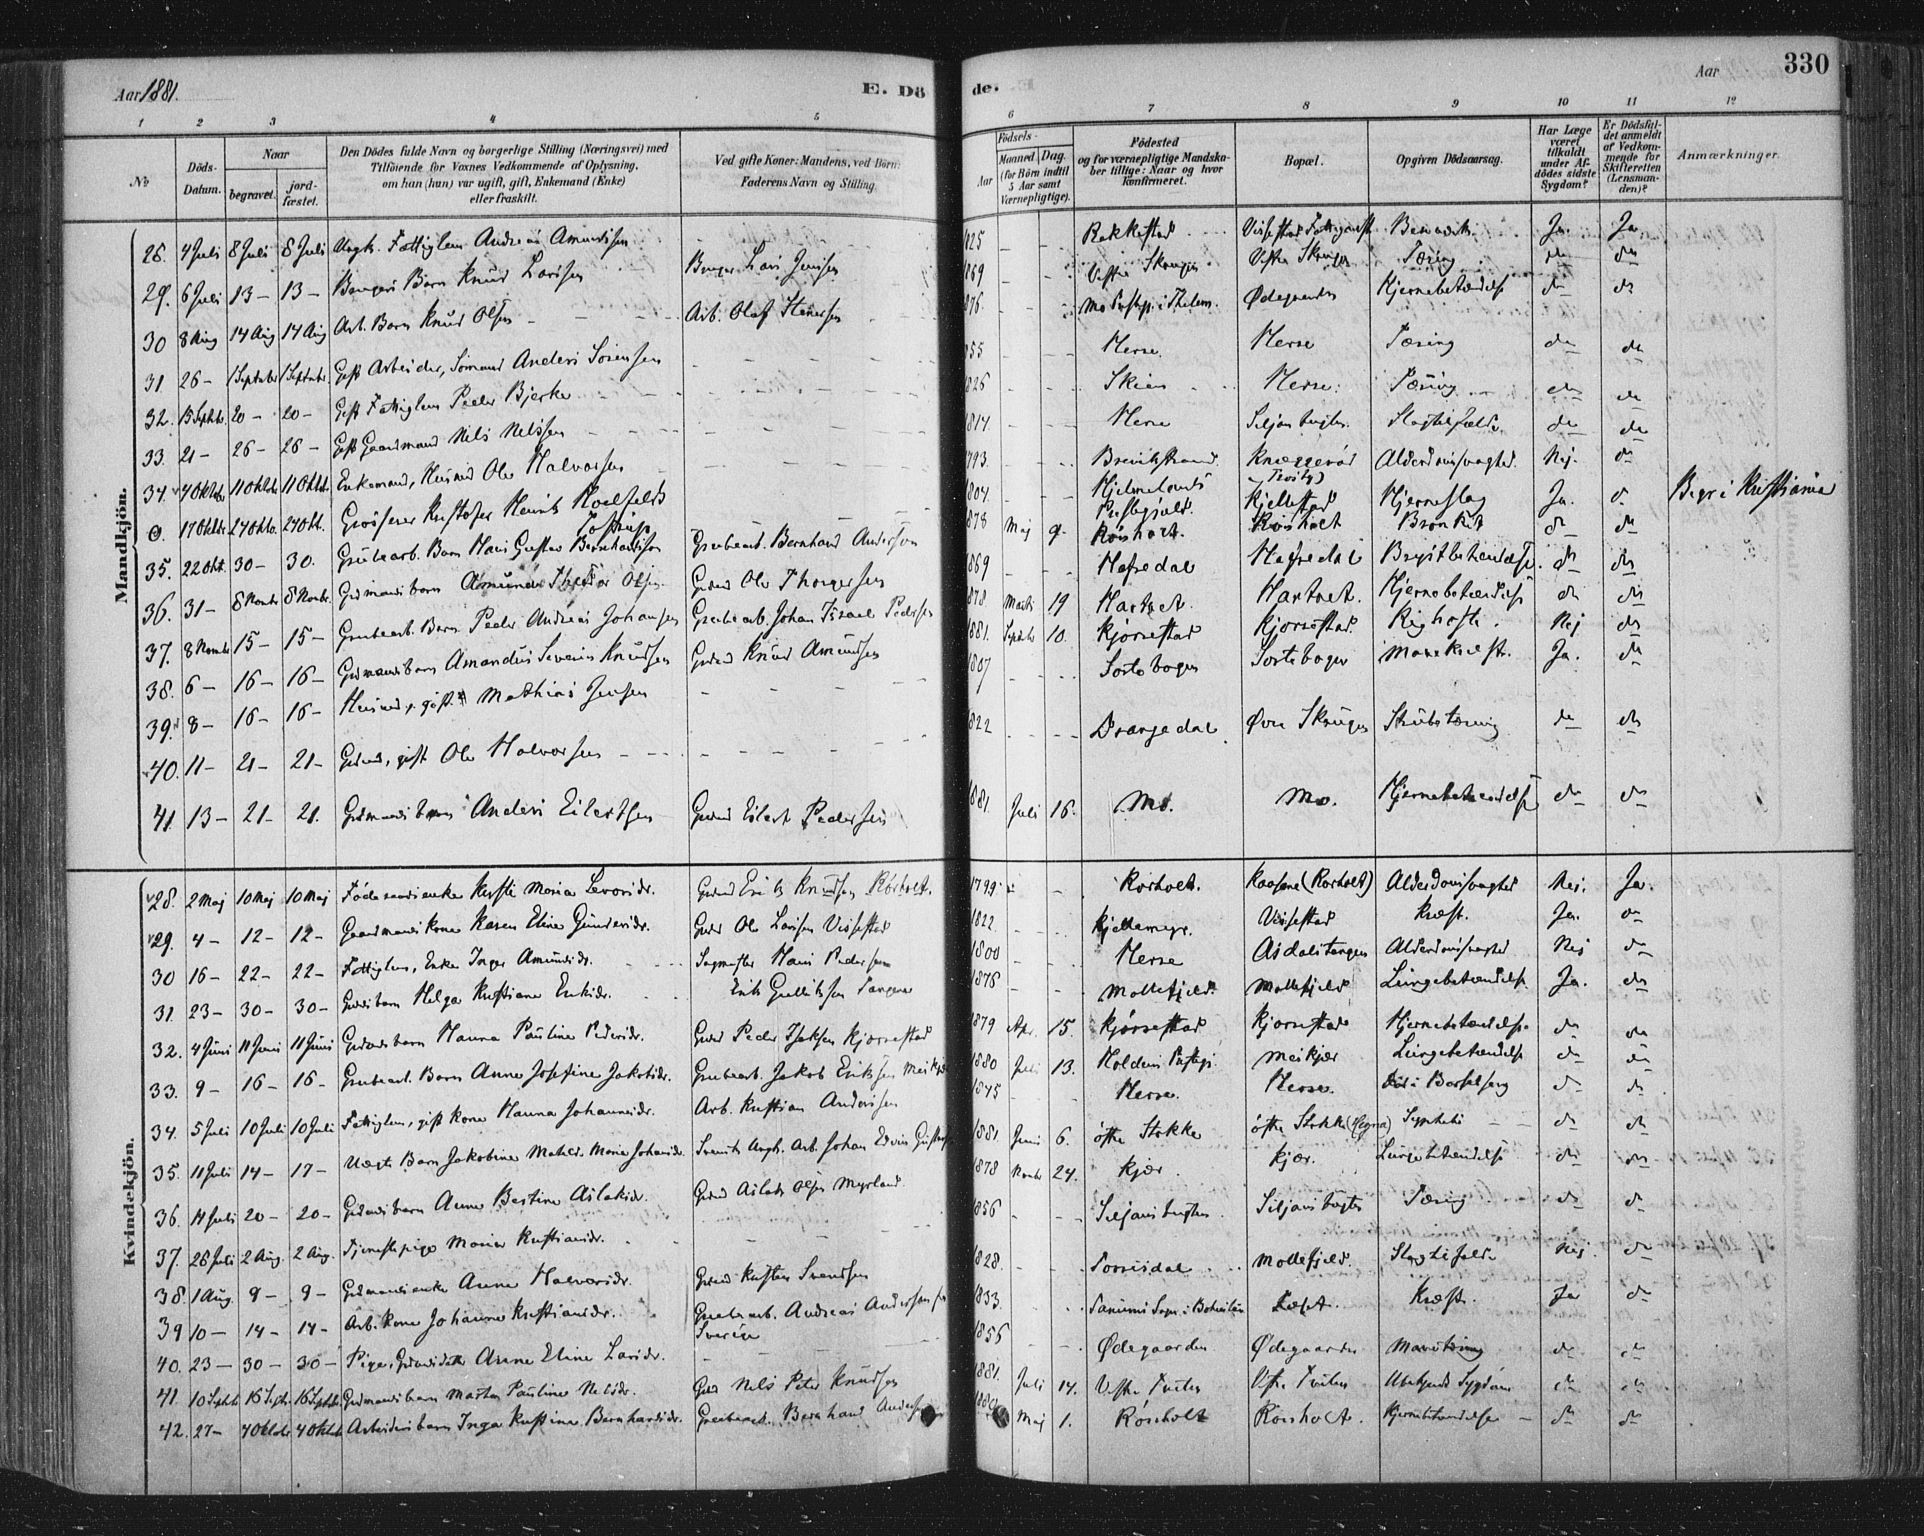 Aar 1881. E. Dö de. Aar 330
1 2 3 4 5 6 7 8 9 10 11 12
No Döds-Datum. Naar begravet. jord-fæstet. Den Dödes fulde Navn og borgerlige Stilling (Næringsvei) med Tilföiende for Voxnes Vedkommende af Oplysning, om han (hun) var ugift, gift, Enkemand (Enke) eller fraskilt. Ved gifte Koner: Mandens, ved Börn: Faderens Navn og Stilling. Födsels- Aar Maaned. Dag. (for Börn indtil 5 Aar samt Værnepligtige). Födested og for værnepligtige Mandskaber tillige: Naar og hvor konfirmeret. Bopæl. Opgiven Dödsaarsag. Har Læge været tilkaldt under Afdödes sidste Sygdom? Er Dödsfaldet anmeldt af Vedkommende for Skifteretten (Lensmanden)? Anmærkninger.
Mandkjön.
28. 4 Juli 8 Juli 8 Juli Ungk. Fattiglem Andreas Amundsen - 1825 - - Bakkestad Ja. Ja.
29. 6 Juli 13 - 13 - Barn Knud Larsen Lars Jensen 1869 - - Vestre Skougen Vestre Skougen Tæring do do
30 8 Aug 14 Aug 14 Aug Arb. Barn Knud Olsen Arb. Olaf Stenersen 1876. - - Mo Præstgj. i Thelem. Ødegaarden Hjernebetændelse do do
31. 26 - 1 Septmbr 1 Septmbr Gift Arbeider, Sömand Anders Sörensen - 1855 - - Herse. Herse Tæring do do
32. 15 Septbr. 20 - 20 - Gift Fattiglem Peder Bjerke - 1826 - - Skien Herse. Tæring do do
33. 21 - 26 - 26 - Gift Gaardmand Nels Nelssen - 1814. - - Herse Siljansbugten. Slagtilfælde do do
34. 4 Oktbr 11 Oktbr 11 Oktbr Enkemand, Husmd Ole Halvorsen - 1793. - - Brevikstrand. Knæggeröd Alderdomssvaghed Nej. do
0. 17 Oktbr 27 Oktbr. 27 Okt. Grosserer Kristofer Henrik Hoelfeldt Tostrup 1804. Præstgjeld. Kjellestad Hjerneslag Ja. do Begr. i Kristiania
35. 22 Okt. 30 - 30. Grubearb. Barn Hans Gustav Bernhardsen Grubearb. Bernhard Anderson 1878 Maj 9. Rörholt. Rörholt Bronkit do do
36. 31 - 8 Novbr 8 Novbr. Grdmandsbarn Amund Olsen Grdmd Ole Thorgersen 1869 - - Hafredal Hafredal Brystbetændelse do do
37. 8 Novbr 15 - 15 - Grubearb. Barn Peder Andreas Johansen Grubearb. Johan Israel Pedersen 1878. Marts 19 Hartvet. Hartvet. Hjernebetændelse do do
38. 6 - 16 - 16 - Grdmandsbarn Amandus Severin Knudsen Grdmd Knud Amundsen 1881. Septbr 10. Kjörsestad Kjörsestad. Kighoste. Nej do
39. 8 - 16 - 16 - Husmd, gift Mathias Jensen - 1807 - - Sortebogen Sortebogen Mavekræft. Ja. do
40. 11 - 21 - 21 - Grdmd, gift Ole Halvorsen - 1822 - - Drangedal Övre Skougen Strubetæring do do
41. 13 - 21 - 21. Grdmandsbarn Anders Eilertsen Grdmd Eilert Pedersen 1881 Juli 16. Mo. Mo. Hjernebetændelse do do
Kvindekjön.
28. 2 Maj 10 Maj 10 Maj Föderaadsenke Kirsti Maria Levorsdr. Grdmd Erik Knudsen Rörholt. 1799 - - Rörholt. Kaasene (Rörholt) Alderdomssvaghed Nej. Ja.
29. 4 - 12 - 12 - Gaardmandskone Karen Eline Gundersdr. Grdmd Ole Larsen Vissestad 1822. - - Kjellemyr. Vissestad Kræft. Ja. do
30 16 - 22 - 22 - Fattiglem, Enke Inger Amundsdr. Sagmester Hans Pedersen 1800 - - Herse Asdalstangen Alderdomssvaghed Nej do
31. 23 - 30 - 30 - Grdmdsbarn Helga Kristiane Eriksdr. Erik Gullikssen Tangene 1876 - - Mollefjeld. Mollefjeld. Lungebetændelse Ja. do
32. 4 Juni 11 Juni 11 Juni Grdmdsbarn Hanna Pauline Pedersdr. Grdmd Peder Isaksen Kjörsestad 1879 Apr. 15. Kjörsestad Kjörsestad Hjernebetændelse do do
33. 9 - 16 - 16 - Grubearb. Barn Anne Josefine Jakobsdr. Grubearb. Jakob Eriksen Meikjær 1880 Juli 13. Holdens Præstgj. Meikjær Lungebetændelse do do
34. 5 Juli 10 Juli 10 Juli Fattiglem, gift Kone Hanna Johannesdr. Arb. Kristian Andersen 1845 - - Herse. Herse Död i Barselseng do do
35. 11 Juli 14 - 17 - Uægte Barn Jakobine Mathilde Marie Johansdr. Svensk Ungk. Arb. Johan Edvin 1881. Juni 6. Östre Stokke Östre Stokke (Hegna) do do
36. 11 Juli 20 - 20 - Grdmdsbarn Anne Bertine Aslaksdr. Grdmd Aslak Olsen Myrland 1878 Novbr 24. Kjær. Kjær. Lungebetændelse do do
37. 26 Juli 2 Aug. 2 Aug. Tjenestepige Maria Kristiansdr. - 1856 - - Siljansbugten. Siljansbugten Tæring do do
38. 1 Aug. 9 - 9 - Grdmandsenke Anne Halvorsdr. Grdmd Kristen Svendsen 1828. - - Torrisdal Mollefjeld. Slagtilfælde Nej. do
39 10 - 14 - 14 - Arb. Kone Johanna Kristiansdr. Grubearb. Andreas Anderson fra Sverige 1833. - - Tanums Sogn i Bohuslän Kræft. Ja do
40. 23 - 30 - 30 - Pige, Grdmdsdatter Anne Eline Larsdr. - 1855 - - Ødegaarden Ødegaarden do do
41. 10 Septbr 16 Septbr. 16 Septbr. Grdmandsbarn Martha Pauline Nelsdr. Grdmd Nels Peter Knudsen 1881. Juli 14. Vestre Tveten Vestre Tveten Ubekjendt Sygdom do do
42. 27 - 4 Oktbr 4 Oktbr Arbeidersbarn Inga Kristine Bernhardsdr. Grubearb. Bernhard Anderson 1880 Maj 1. Rörholt Rörholt. Hjernebetændelse - do do